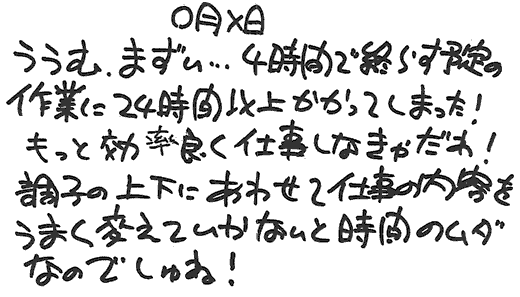 〇月×日
ううむ、まずい… 4時間で終らす予定の
作業に24時間以上かかってしまった!
もっと効率良く仕事しなきゃだわ!
調子の上下にあわせて仕事の内容を
うまく変えていかないと時間のムダ
なのでしゅね!